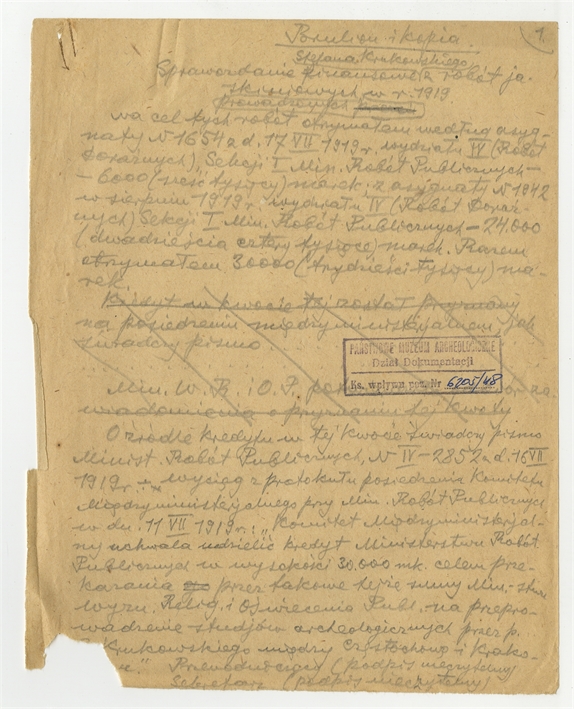 1.
Brulion i kopia.
Stefana Krukowskiego
Sprawozdanie finansowe z robót ja-
skiniowych w r. 1919
prowadzonych
Na cel tych robót otrzymałem według asyg-
naty N 1654 z d. 17 VII 1919 r. wydziału IV (Robót
Doraźnych), Sekcji I Min. Robót Publicznych –
– 6000 (sześć tysięcy) marek; z asygnaty N 1842
w sierpniu 1919 r. wydziału IV (Robót Doraź-
nych) Sekcji I Min. Robót Publicznych – 24.000
(dwadzieścia cztery tysiące) marek. Razem
otrzymałem 30000 (trzydzieści tysięcy) ma-
rek.
Kredyt w kwocie tej został przyznany
na posiedzeniu międzyministerjalnem, jak
świadczy pismo
PAŃSTWOWE MUZEUM ARCHEOLOGICZNE
Dział Dokumentacji
Ks. wpływu poz. Nr 6205/48
Min. W. R. i O. P. za-
wiadomienia o przyznaniu tej kwoty
O źródle kredytu w tej kwocie świadczy pismo
Minist. Robót Publicznych, N IV – 2852 z d. 16 VII
1919 r. wyciąg z protokułu posiedzenia Komitetu
Międzyministerjalnego przy Min. Robót Publicznych
w dn. 11 VII 1919 r.: „Komitet Międzyministerjal-
ny uchwala udzielić kredyt Ministerstwu Robót
Publicznych w wysokości 30.000 mk. celem prze-
kazania przez takowe tejże sumy Min.-stwu
Wyzn. Relig. i Oświecenia Publ. na przepro-
wadzenie studjów archeologicznych przez p.
Krukowskiego między Częstochową i Krako-
wem." Przewodniczący (podpis nieczytelny)
Sekretarz (podpis nieczytelny)